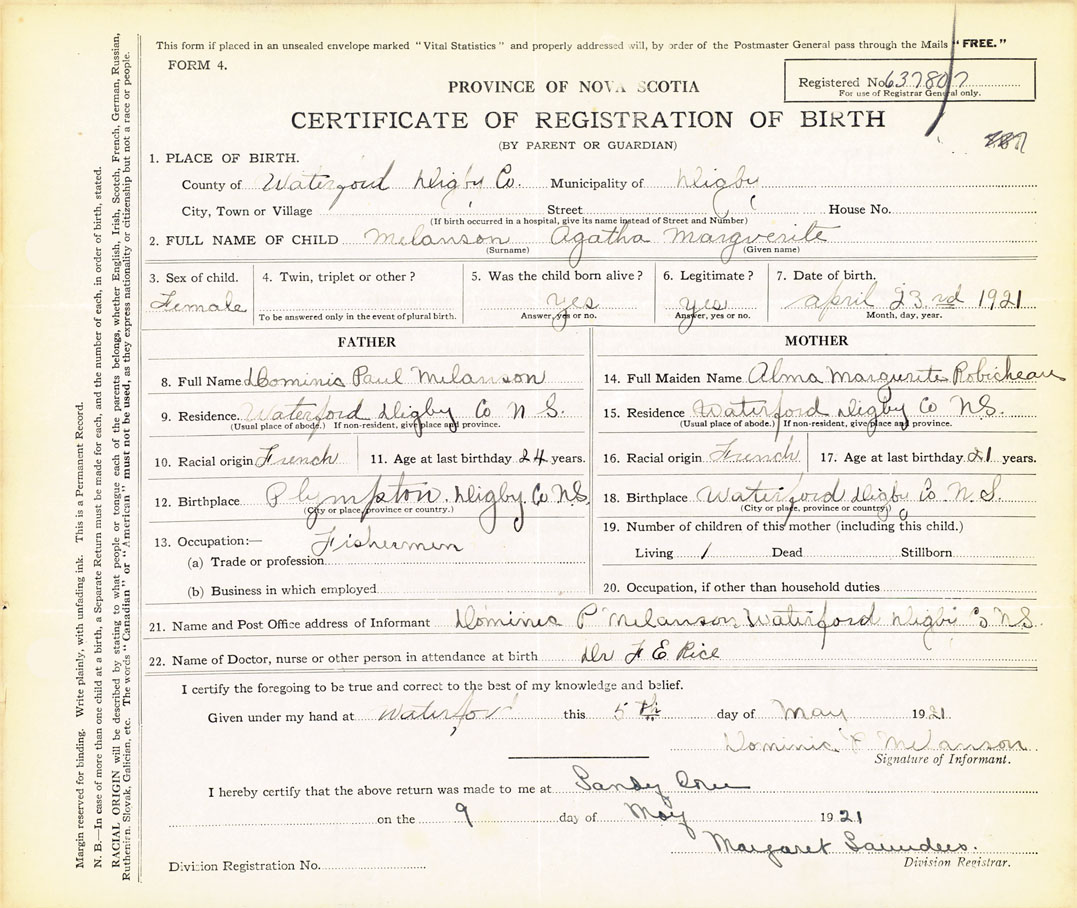 This form if placed in an unsealed envelope marked "Vital Statistics" and properly addressed will, by order of the Postmaster General pass through the Mails "FREE."
FORM 4.
Registered No. 637807
For use of Registrar General only.
PROVINCE OF NOVA SCOTIA
CERTIFICATE OF REGISTRATION OF BIRTH
(BY PARENT OR GUARDIAN)
1. PLACE OF BIRTH.
County of Waterford Digby Co. Municipality of Digby
City, Town or Village Street House No.
(If birth occurred in a hospital, give its name instead of Street and Number)
2. FULL NAME OF CHILD Melanson Agatha Marguerite
(Surname) (Given name)
3. Sex of child. 4. Twin, triplet or other? 5. Was the child born alive? 6. Legitimate? 7. Date of birth.
Female yes yes april 23rd 1921
To be answered only in the event of plural birth. Answer, yes or no. Answer, yes or no. Month, day, year.
FATHER
8. Full Name Dominic Paul Melanson
9. Residence. Waterford Digby Co N S.
(Usual place of abode.) If non-resident, give place and province.
10. Racial origin French 11. Age at last birthday 24 years.
12. Birthplace Plympton. Digby Co NS
(City or place, province or country.)
13. Occupation:— Fishermen
(a) Trade or profession
(b) Business in which employed
MOTHER
14. Full Maiden Name Alma Margurite Robicheau
15. Residence Waterford Digby Co NS.
(Usual place of abode.) If non-resident, give place and province.
16. Racial origin French 17. Age at last birthday 21 years.
18. Birthplace Waterford Digby Co N S
(City or place, province or country)
19. Number of children of this mother (including this child.)
Living 1 Dead Stillborn
20. Occupation, if other than household duties
21. Name and Post Office address of Informant Dominic P Melanson Waterford Digby Co NS.
22. Name of Doctor, nurse or other person in attendance at birth Dr F E Rice
I certify the foregoing to be true and correct to the best of my knowledge and belief.
Given under my hand at Waterford this 5th day of May 1921
Dominic P Melanson
Signature of Informant.
I hereby certify that the above return was made to me at Sandy Cove
on the 9 day of May 1921
Margaret Saunders.
Division Registrar.
Division Registration No.
Margin reserved for binding. Write plainly, with unfading ink. This is a Permanent Record.
N. B.—In case of more than one child at a birth, a Separate Return must be made for each, and the number of each, in order of birth, stated.
RACIAL ORIGIN will be described by stating to what people or tongue each of the parents belongs, whether English, Irish, Scotch, French, German, Russian,
Ruthenian, Slovak, Galician, etc. The words "Canadian" or "American" must not be used, as they express nationality or citizenship but not a race or people.